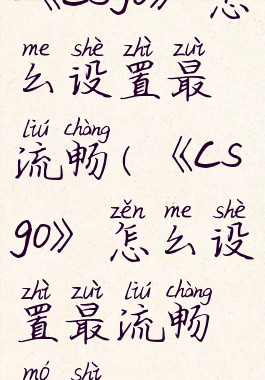 《CSgo》 怎
me shè zhì zuì
么设置最
liú chàng
流畅( 《CS
zěn me shè
go》 怎么设
zhì zuì liú chàng
置最流畅
mó shì